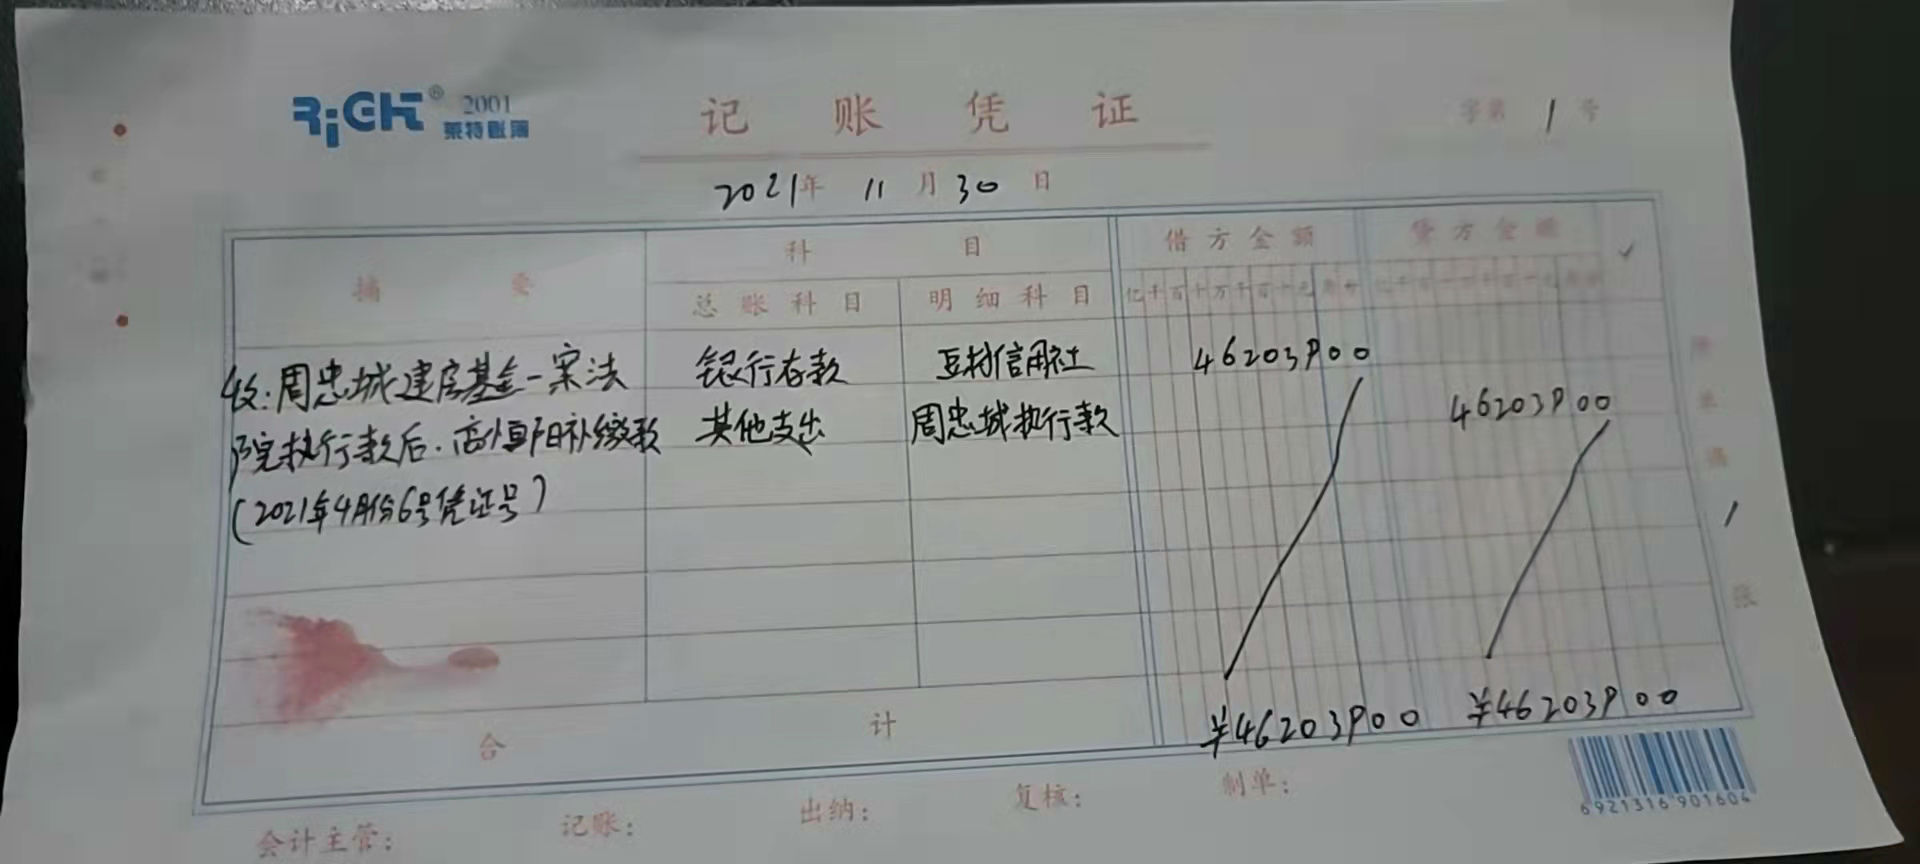 RiGHT® 2001
莱特账簿
记账凭证
字第 1 号
2021年 11月 30日
摘要 科目 借方金额 贷方金额 ✓
总账科目 明细科目 亿千百十万千百十元角分
收:周忠城建房基金一案法 银行存款 豆村信用社 46203900
院执行款后.高恒阳补缴款 其他支出 周忠城执行款 46203900
(2021年4月份6号凭证号)
1
张
合计 ¥46203900 ¥46203900
会计主管: 记账: 出纳: 复核: 制单:
6921316901604